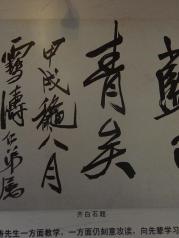 青矣
甲戌龝八月
雪濤仁弟属
齐白石题
先生一方面教学，一方面仍刻意攻读，向先辈学习